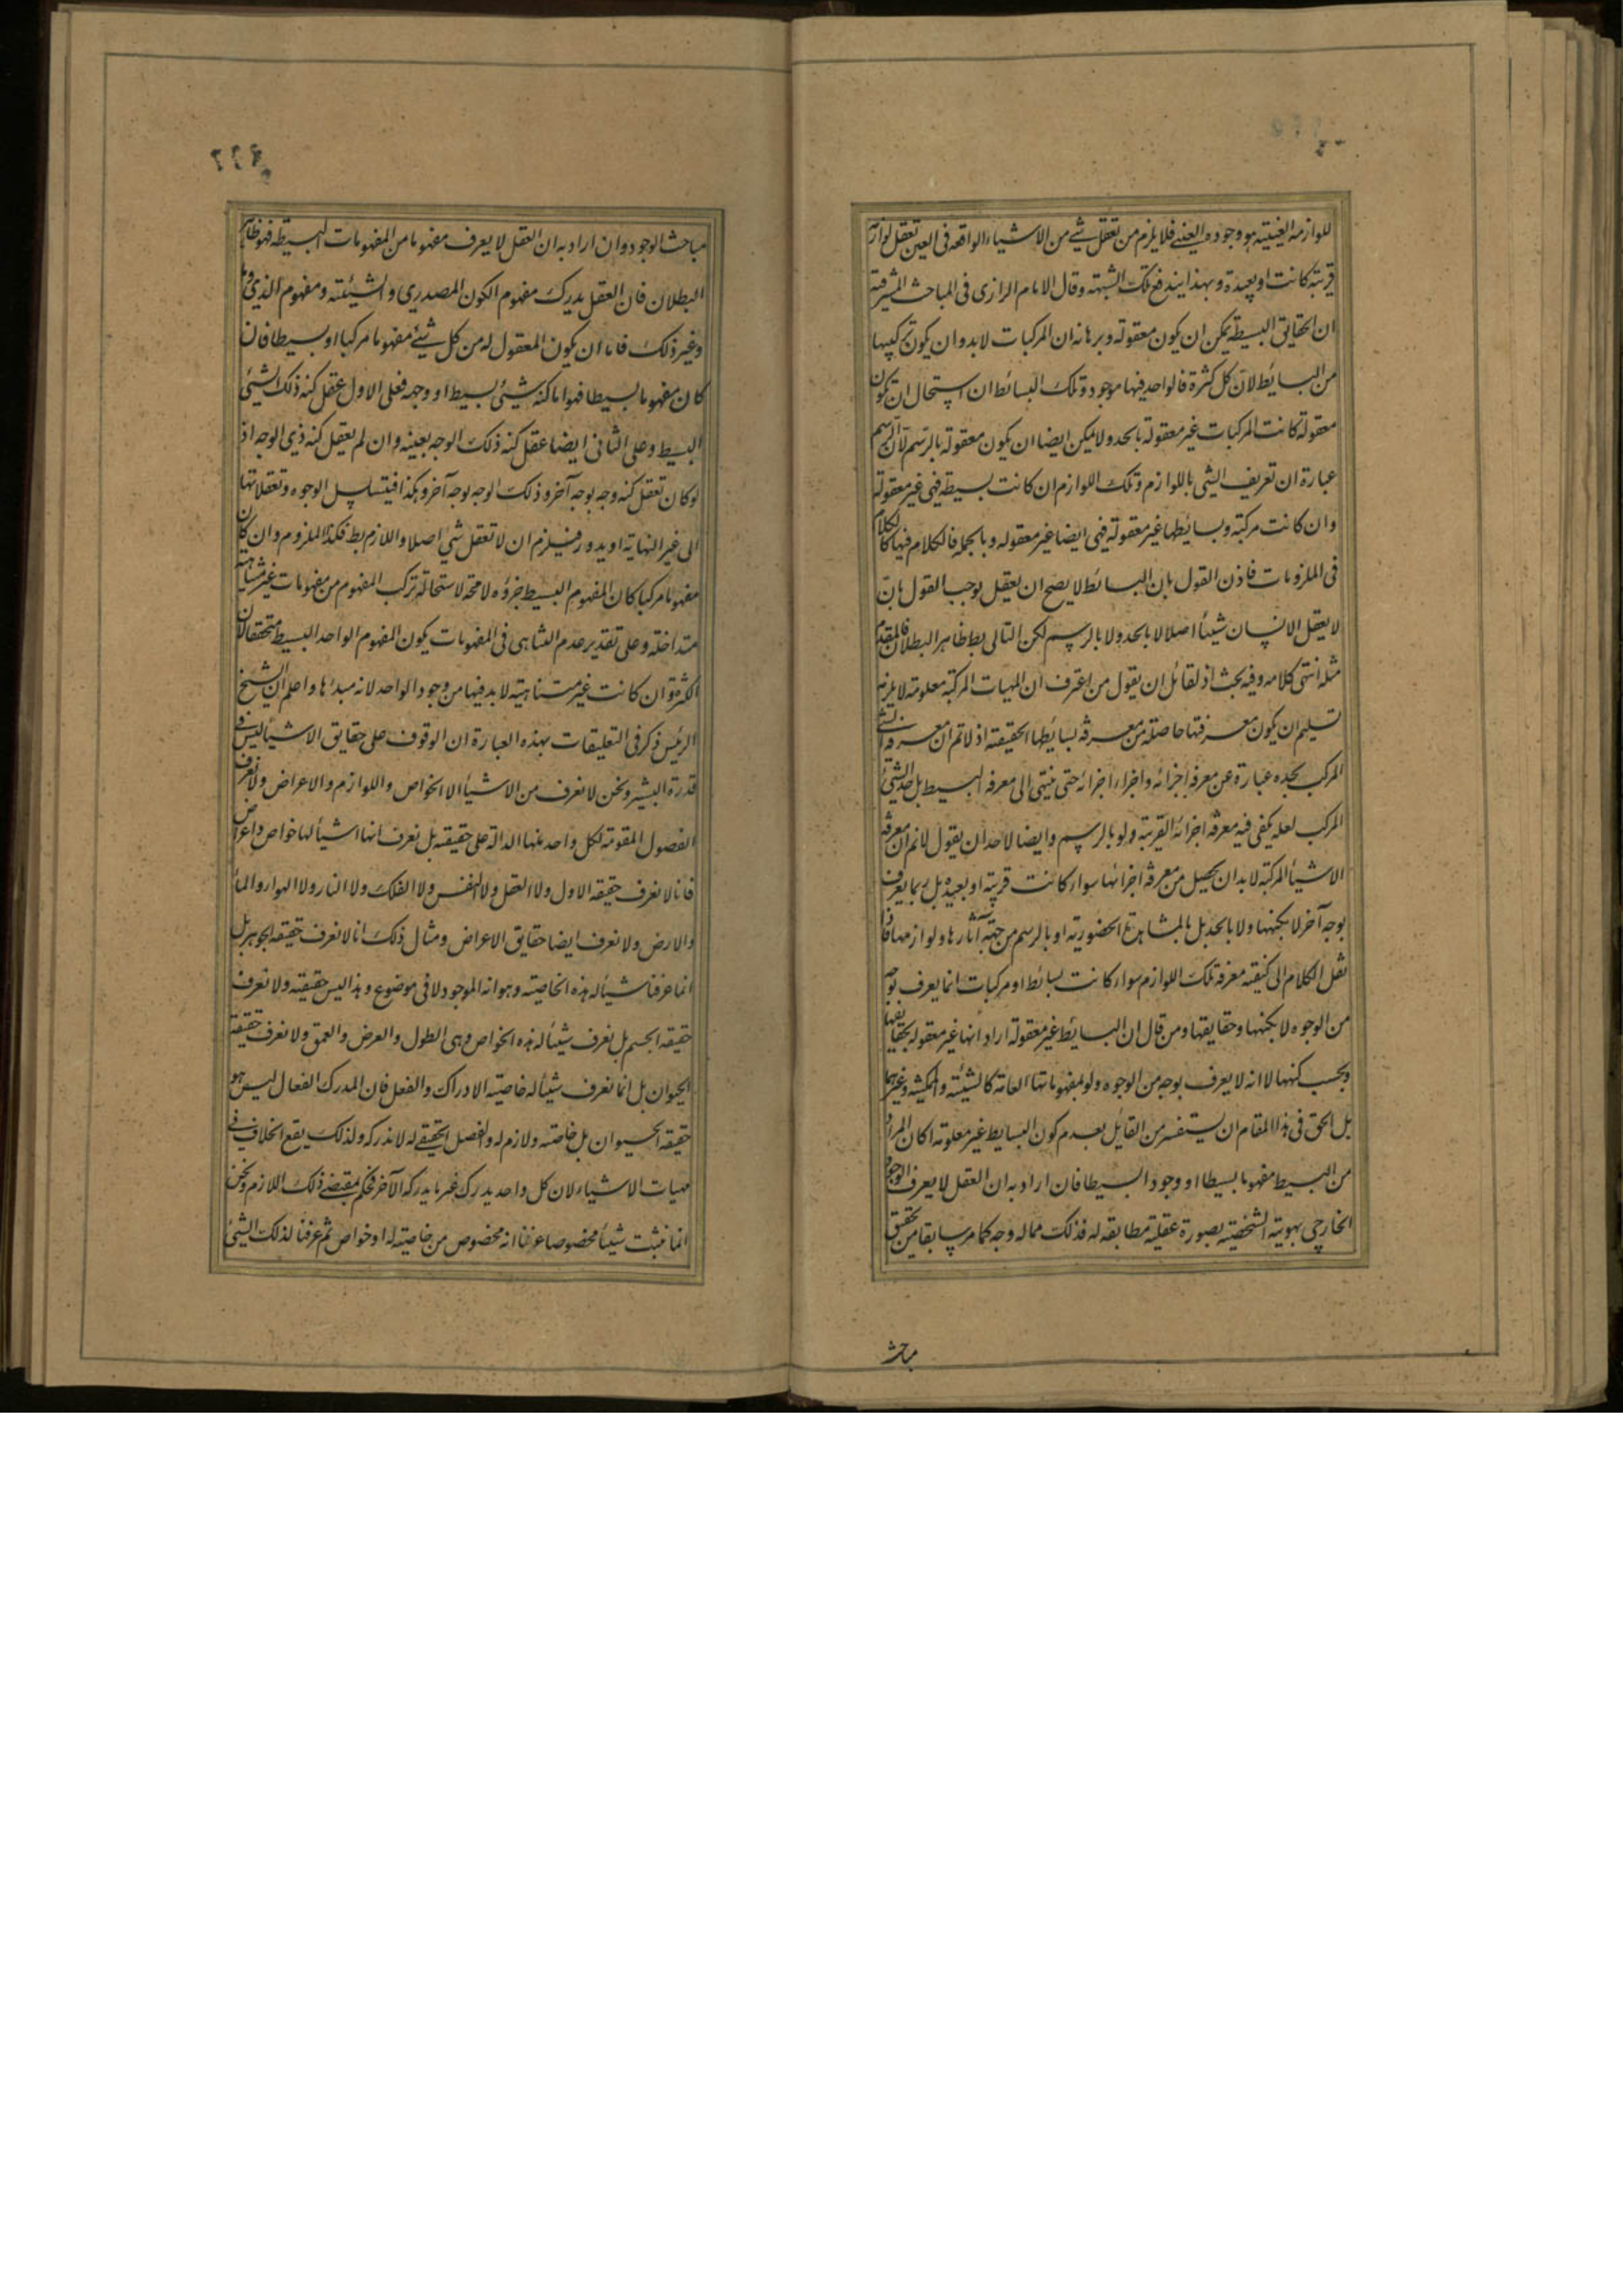 للوازمه العينية هو وجوده العيني فلا يلزم من تعقل شي من الاشياء الواقعه فى العين تعقل لوازمه
قريبة كانت او بعيدة وبهذا يندفع تلك الشبهة وقال الامام الرازى فى المباحث المشرقية
ان الحقايق البسيطة يمكن ان يكون معقولة وبرهانه ان المركبات لابد وان يكون تركيبها
من البسائط لان كل كثرة فالواحد فيها موجود وتلك البسائط ان استحال ان تكون
معقولة كانت المركبات غير معقولة بالحد ولا يمكن ايضا ان يكون معقولة بالرسم لان الرسم
عبارة ان تعريف الشي باللوازم وتلك اللوازم ان كانت بسيطة فهى غير معقولة
وان كانت مركبة وبسائطها غير معقولة فهى ايضا غير معقوله وبالجمله فالكلام فيها كالكلام
فى الملزومات فاذن القول بان البسائط لا يصح ان يعقل يوجب القول بان
لا يعقل الانسان شيئا اصلا لا بالحد ولا بالرسم لكن التالى بط ظاهر البطلان فالمقدم
مثله انتهى كلامه وفيه بحث اذ لقائل ان يقول من اعترف ان المهيات المركبة معلومة لا يلزمه
تسليم ان يكون معرفتها حاصلة من معرفة بسائطها الحقيقة اذ لا تم ان معرفة الشي
المركب بحده عبارة عن معرفة اجزائه واجزاء اجزائه حتى ينتهى الى معرفة البسيط بل حد الشي
المركب لعله يكفى فيه معرفة اجزائه القريبة ولو بالرسم وايضا لاحد ان يقول لا نم ان معرفة
الاشياء المركبة لابد ان يحصل من معرفة اجزائها سواء كانت قريبة او بعيدة بل ربما يعرف
بوجه آخر لا بكنهها ولا بالحد بل بالمشاهدة الحضورية او بالرسم من جهة آثارها ولوازمها فاذا
نقل الكلام الى كيفية معرفة تلك اللوازم سواء كانت بسائط او مركبات انما يعرف بوجه
من الوجوه لا بكنهها وحقايقها ومن قال ان البسائط غير معقولة اراد انها غير معقوله بحقايقها
وبحسب كنهها لا انه لا يعرف بوجه من الوجوه ولو بمفهوماتها العامة كالشيئية والممكنية وغيرهما
بل الحق فى هذا المقام ان يستفسر من القايل بعدم كون البسايط غير معلومة اكان المراد
من البسيط مفهوما بسيطا او وجودا بسيطا فان اراد به ان العقل لا يعرف الوجود
الخارجى بهويته الشخصية بصورة عقلية مطابقه له فذلك مما له وجه كما مر سابقا من تحقيق
مباحث
مباحث الوجود وان اراد به ان العقل لا يعرف مفهوما من المفهومات البسيطة فهو ظاهر
البطلان فان العقل يدرك مفهوم الكون المصدرى والشيئية ومفهوم الذى وما
وغير ذلك فاما ان يكون المعقول له من كل شئ مفهوما مركبا او بسيطا فان
كان مفهوما بسيطا فهو اما كنه شئ بسيط او وجهه فعلى الاول عقل كنه ذلك الشئ
البسيط وعلى الثانى ايضا عقل كنه ذلك الوجه بعينه وان لم يعقل كنه ذى الوجه اذ
لو كان تعقل كنه وجه بوجه آخر وذلك الوجه بوجه آخر وهكذا فيتسلسل الوجوه وتعقلاتها
الى غير النهاية او يدور فيلزم ان لا تعقل شي اصلا واللازم بط فكذا الملزوم وان كان
مفهوما مركبا كان المفهوم البسيط جزؤه لا محة لاستحالة تركب المفهوم من مفهومات غير متناهية
متداخلة وعلى تقدير عدم التناهى فى المفهومات يكون المفهوم الواحد البسيط متحققا لان
الكثرة وان كانت غير متناهية لابد فيها من وجود الواحد لانه مبدئها واعلم ان الشيخ
الرئيس ذكر فى التعليقات بهذه العبارة ان الوقوف على حقايق الاشياء ليس فى
قدرة البشر ونحن لا نعرف من الاشياء الا الخواص واللوازم والاعراض ولا نعرف
الفصول المقومة لكل واحد منها الدالة على حقيقته بل نعرف انها اشياء لها خواص واعراض
فانا لا نعرف حقيقه الاول ولا العقل ولا النفس ولا الفلك ولا النار ولا الهواء والماء
والارض ولا نعرف ايضا حقايق الاعراض ومثال ذلك انا لا نعرف حقيقه الجوهر بل
انما عرفنا شيئا له هذه الخاصية وهو انه الموجود لا فى موضوع وهذا ليس حقيقته ولا نعرف
حقيقه الجسم بل نعرف شيئا له هذه الخواص وهى الطول والعرض والعمق ولا نعرف حقيقة
الحيوان بل انما نعرف شيئا له خاصية الادراك والفعل فان المدرك الفعال ليس هو
حقيقه الحيوان بل خاصة ولازم له والفصل الحقيقى له لا ندركه ولذلك يقع الخلاف فى
مهيات الاشياء لان كل واحد يدرك غير ما يدركه الآخر فحكم بمقتضى ذلك اللازم ونحن
انما نثبت شيئا مخصوصا عرفنا انه مخصوص من خاصية له او خواص ثم عرفنا لذلك الشئ